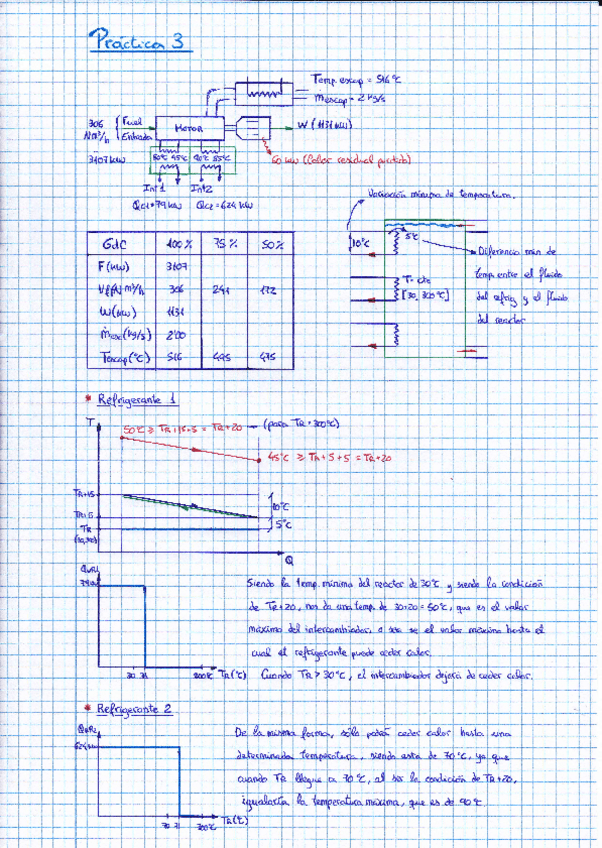 Práctica 3
Temp. escap = 516 ºC
ṁescap = 2 kg/s
306 Nm³/h
Fuel Entrada
MOTOR
W (1131 kW)
3107 kW
80ºC 45ºC 90ºC 85ºC
60 kW (Calor residual perdido)
Int 1
Int 2
Qc1 = 79 kW
Qc2 = 624 kW
Variación mínima de temperatura.
10ºC
5ºC
Diferencia min de
temp. entre el fluido
del refrig y el fluido
del reactor
T = cte
[30, 300ºC]
GdC 100% 75% 50%
F (kW) 3107
Vf (Nm³/h) 306 241 172
W (kW) 1131
ṁesc (kg/s) 2'00
Tescap (ºC) 516 475
* Refrigerante 1
T
50ºC ≥ TR+15+5 = TR+20
(para TR = 300ºC)
45ºC ≥ TR+5+5 = TR+20
TR+15
10ºC
TR+5
5ºC
TR
Q
79 kW
30 31 TR (ºC)
Siendo la temp. mínima del reactor de 30ºC y siendo la condición
de TR+20, nos da una temp. de 30+20 = 50ºC, que es el valor
máximo del intercambiador, o sea es el valor máximo hasta el
cual el refrigerante puede ceder calor.
Cuando TR > 30ºC, el intercambiador dejará de ceder calor.
* Refrigerante 2
624 kW
70 71 TR (ºC)
De la misma forma, sólo podrá ceder calor hasta una
determinada temperatura, siendo esta de 70ºC, ya que
cuando TR llegue a 70ºC, al ser la condición de TR+20,
igualaría la temperatura máxima, que es de 90ºC.